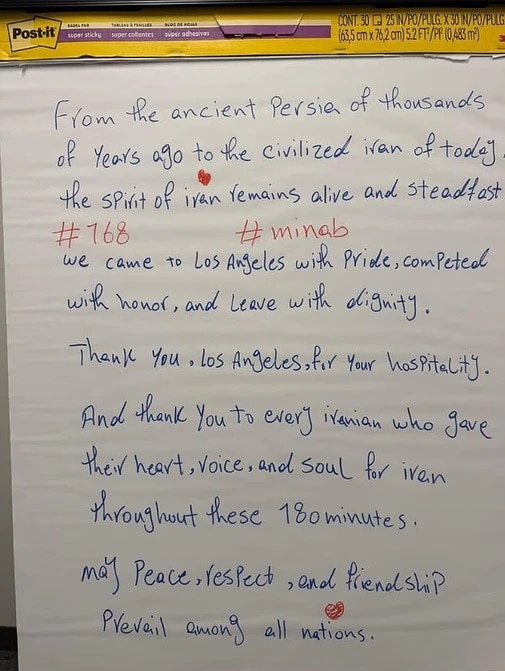 Post-it
EASEL PAD
super sticky
TABLEAU À FEUILLES
super collantes
BLOC DE HOJAS
súper adhesivas
CONT. 30 25 IN/PO/PULG. X 30 IN/PO/PULG
(63,5 cm x 76,2 cm) 5.2 FT²/PI² (0,483 m²)
From the ancient Persia of thousands
of years ago to the civilized iran of today.
the spirit of iran remains alive and steadfast
#168 #minab
we came to Los Angeles with Pride, competed
with honor, and Leave with dignity.
Thank You, Los Angeles, for Your hospitality.
And thank You to every iranian who gave
their heart, voice, and soul for iran
throughout these 180 minutes.
may Peace, respect, and friendship
Prevail among all nations.